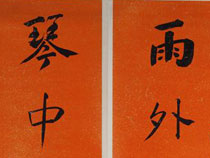 雨外
琴中